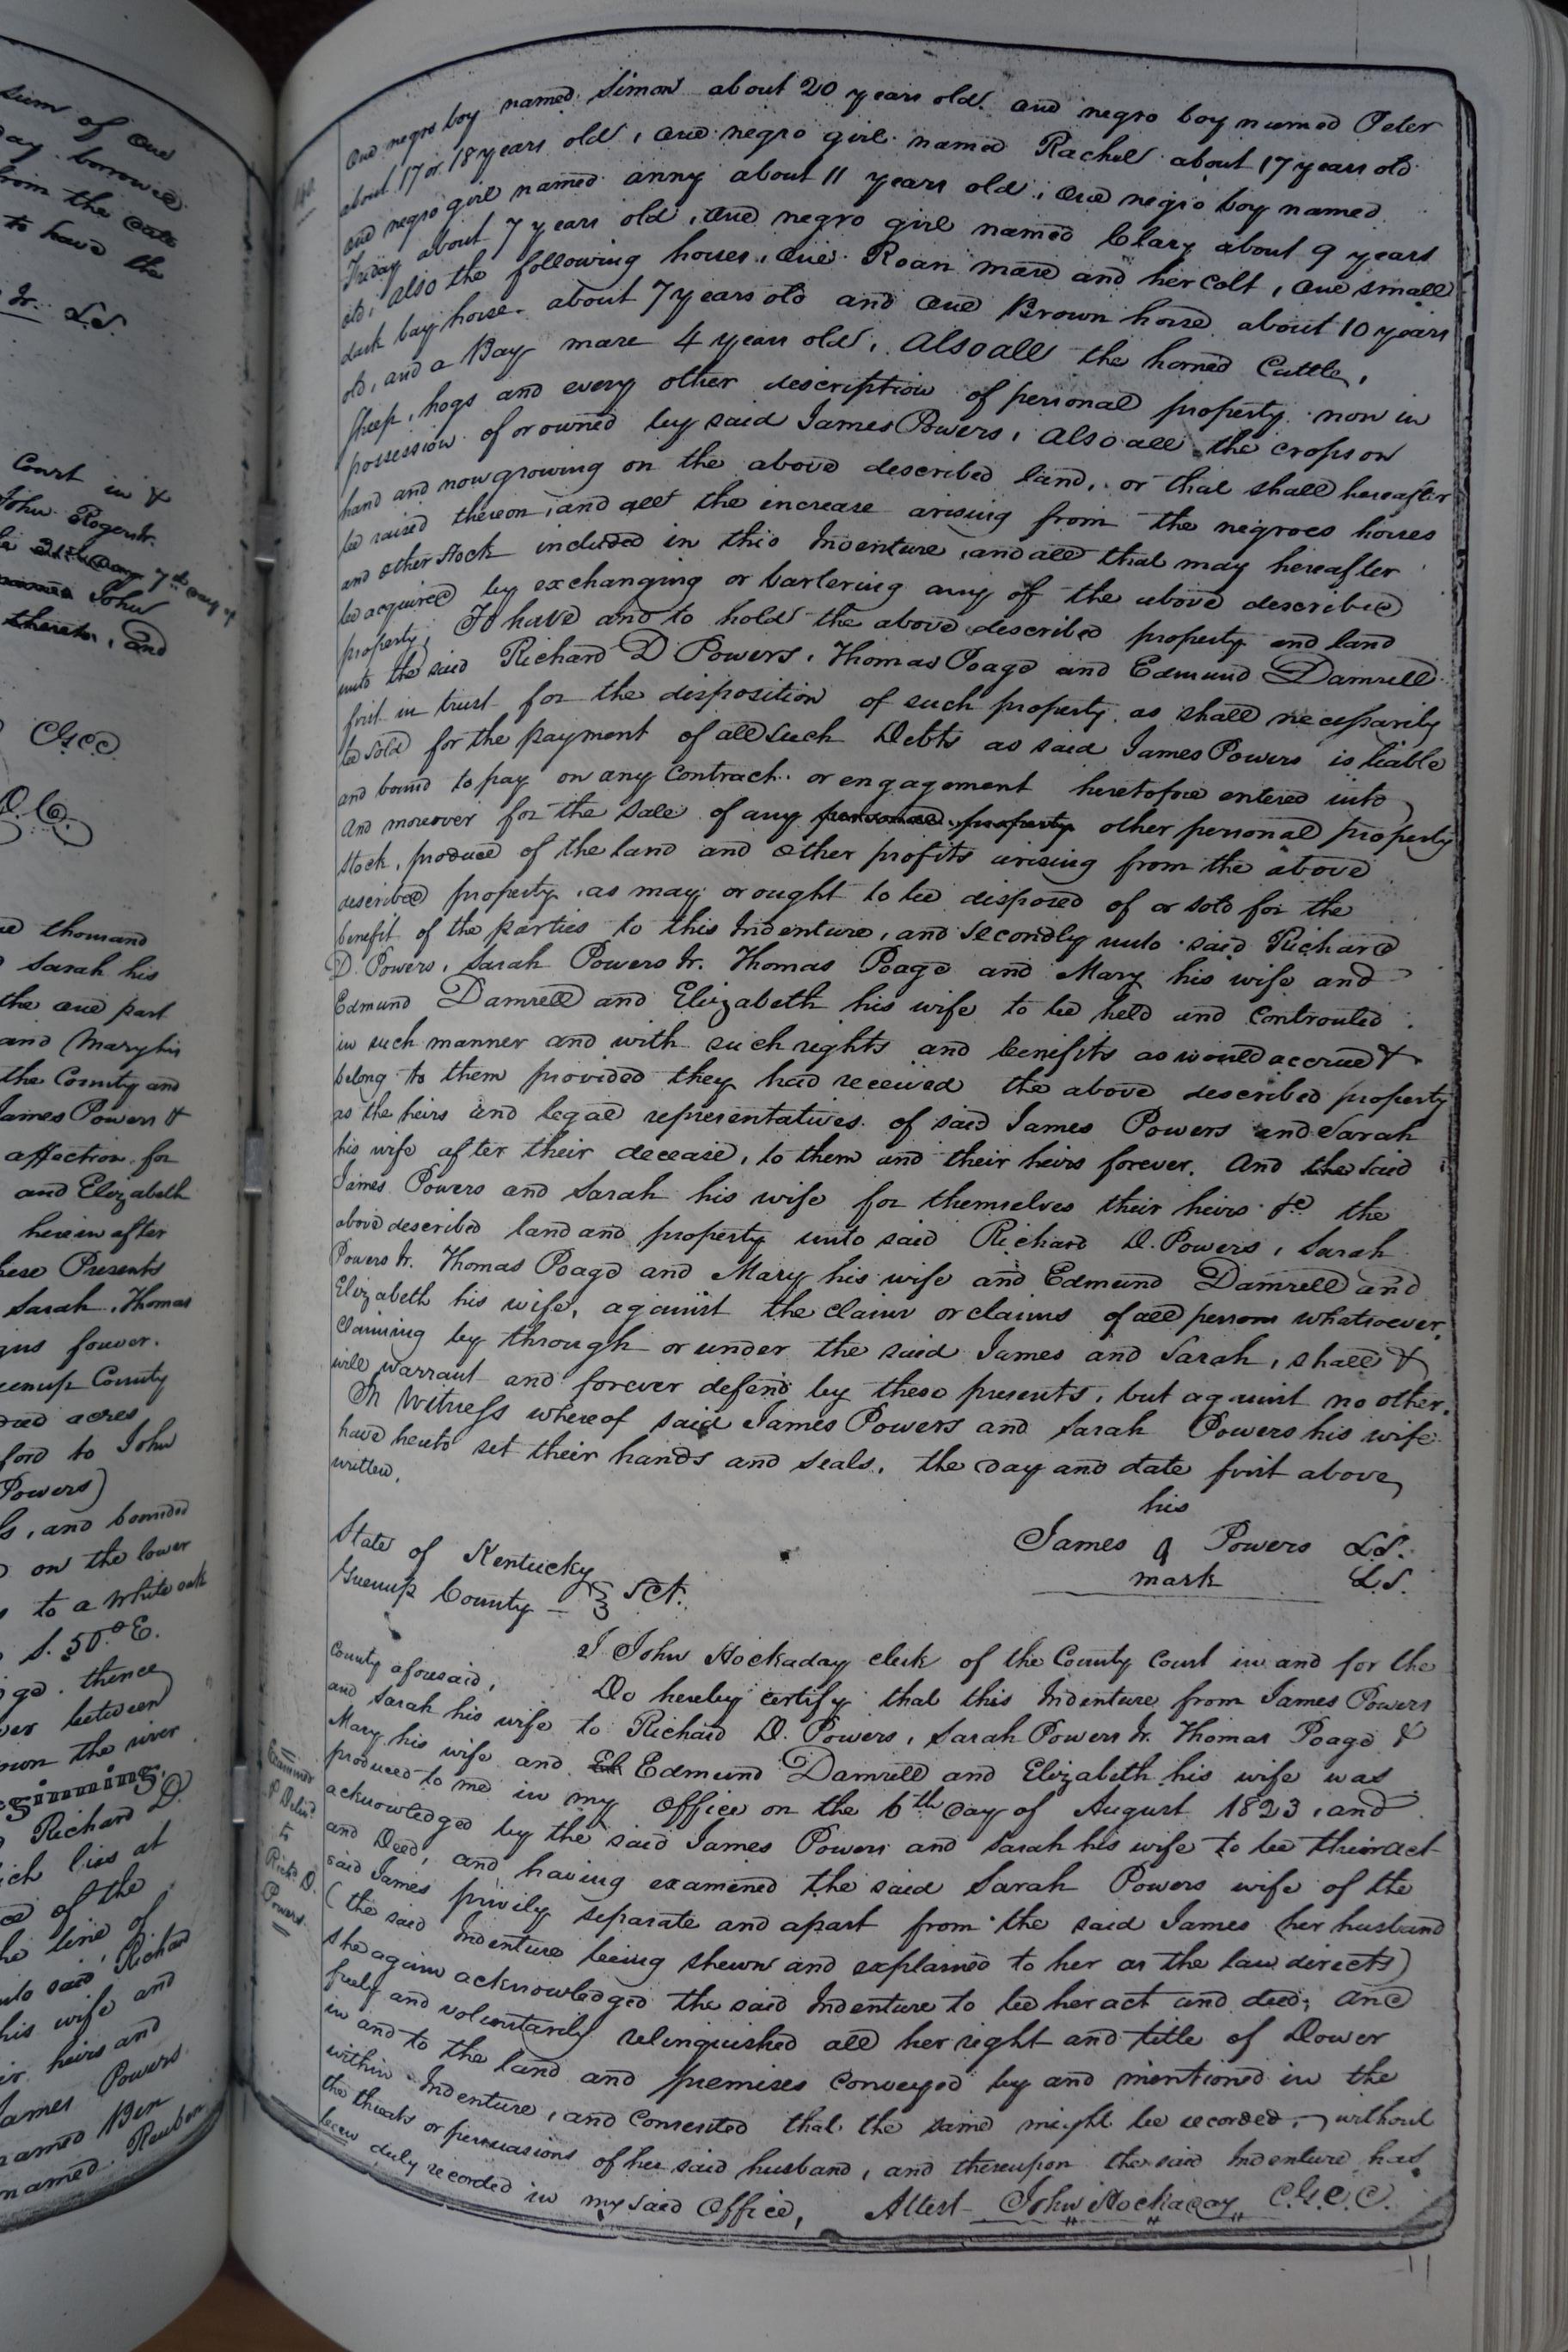 sum of one
day borrowed
from the
to have the
Jr. L.S.
Court in &
John Rogers Jr.
7th day of
John
thereto, and
C.G.C.C.
D.C.
thousand
Sarah his
the one part
and Mary his
the County and
James Powers &
affection for
and Elizabeth
herein after
these Presents
Sarah, Thomas
forever.
County
acres
ford to John
Powers)
and bounded
on the lower
to a White oak
S. 50° E.
thence
between
the river
Beginning.
Richard D.
lies at
of the
line of
said Richard
his wife and
heirs and
James Powers
named Ben
named Reuben
140.
one negro boy named Simon about 20 years old. one negro boy named Peter
about 17 or 18 years old, one negro girl named Rachel about 17 years old
one negro girl named anny about 11 years old, one negro boy named
Friday about 7 years old, one negro girl named Clary about 9 years
old, also the following horses, one Roan mare and her colt, one small
dark bay horse about 7 years old and one Brown horse about 10 years
old, and a Bay mare 4 years old, Also all the horned Cattle,
Sheep, hogs and every other description of personal property now in
possession of or owned by said James Powers, also all the crops on
hand and now growing on the above described land, or that shall hereafter
be raised thereon, and all the increase arising from the negroes horses
and other stock included in this Indenture, and all that may hereafter
be acquired by exchanging or bartering any of the above described
property, To have and to hold the above described property and land
unto the said Richard D Powers, Thomas Poage and Edmund Damrell
first in trust for the disposition of such property as shall necessarily
be sold for the payment of all such Debts as said James Powers is liable
and bound to pay on any contract or engagement heretofore entered into
And moreover for the sale of any personal property other personal property
stock, produce of the land and other profits arising from the above
described property, as may or ought to be disposed of or sold for the
benefit of the parties to this Indenture, and secondly unto said Richard
D. Powers, Sarah Powers Jr. Thomas Poage and Mary his wife and
Edmund Damrell and Elizabeth his wife to be held and controuled
in such manner and with such rights and benifits as would accrue &
belong to them provided they had received the above described property
as the heirs and legal representatives of said James Powers and Sarah
his wife after their decease, to them and their heirs forever. And the said
James Powers and Sarah his wife for themselves their heirs &c the
above described land and property unto said Richard D. Powers, Sarah
Powers Jr. Thomas Poage and Mary his wife and Edmund Damrell and
Elizabeth his wife, against the claim or claims of all persons whatsoever,
claiming by through or under the said James and Sarah, shall &
will warrant and forever defend by these presents, but against no other.
In Witness whereof said James Powers and Sarah Powers his wife
have heuto set their hands and seals, the day and date first above
written.
his
James Powers L.S.
mark L.S.
State of Kentucky
Greenup County Sct.
I John Hockaday clerk of the County Court in and for the
County aforesaid, Do hereby certify that this Indenture from James Powers
and Sarah his wife to Richard D. Powers, Sarah Powers Jr. Thomas Poage &
Mary his wife and Eli Edmund Damrell and Elizabeth his wife was
produced to me in my office on the 6th day of August 1823, and
acknowledged by the said James Powers and Sarah his wife to be their act
and Deed, and having examined the said Sarah Powers wife of the
said James privily separate and apart from the said James her husband
(the said Indenture being shewn and explained to her as the law directs)
she again acknowledged the said Indenture to be her act and deed, and
freely and voluntarily relinquished all her right and title of Dower
in and to the land and premises conveyed by and mentioned in the
within Indenture, and Consented that the same might be recorded, without
the threats or persuasions of her said husband, and thereupon the said Indenture has
been duly recorded in my said Office, Attest John Hockaday C.G.C.C.
Examined
& Deliv'd
to
Rich'd D.
Powers